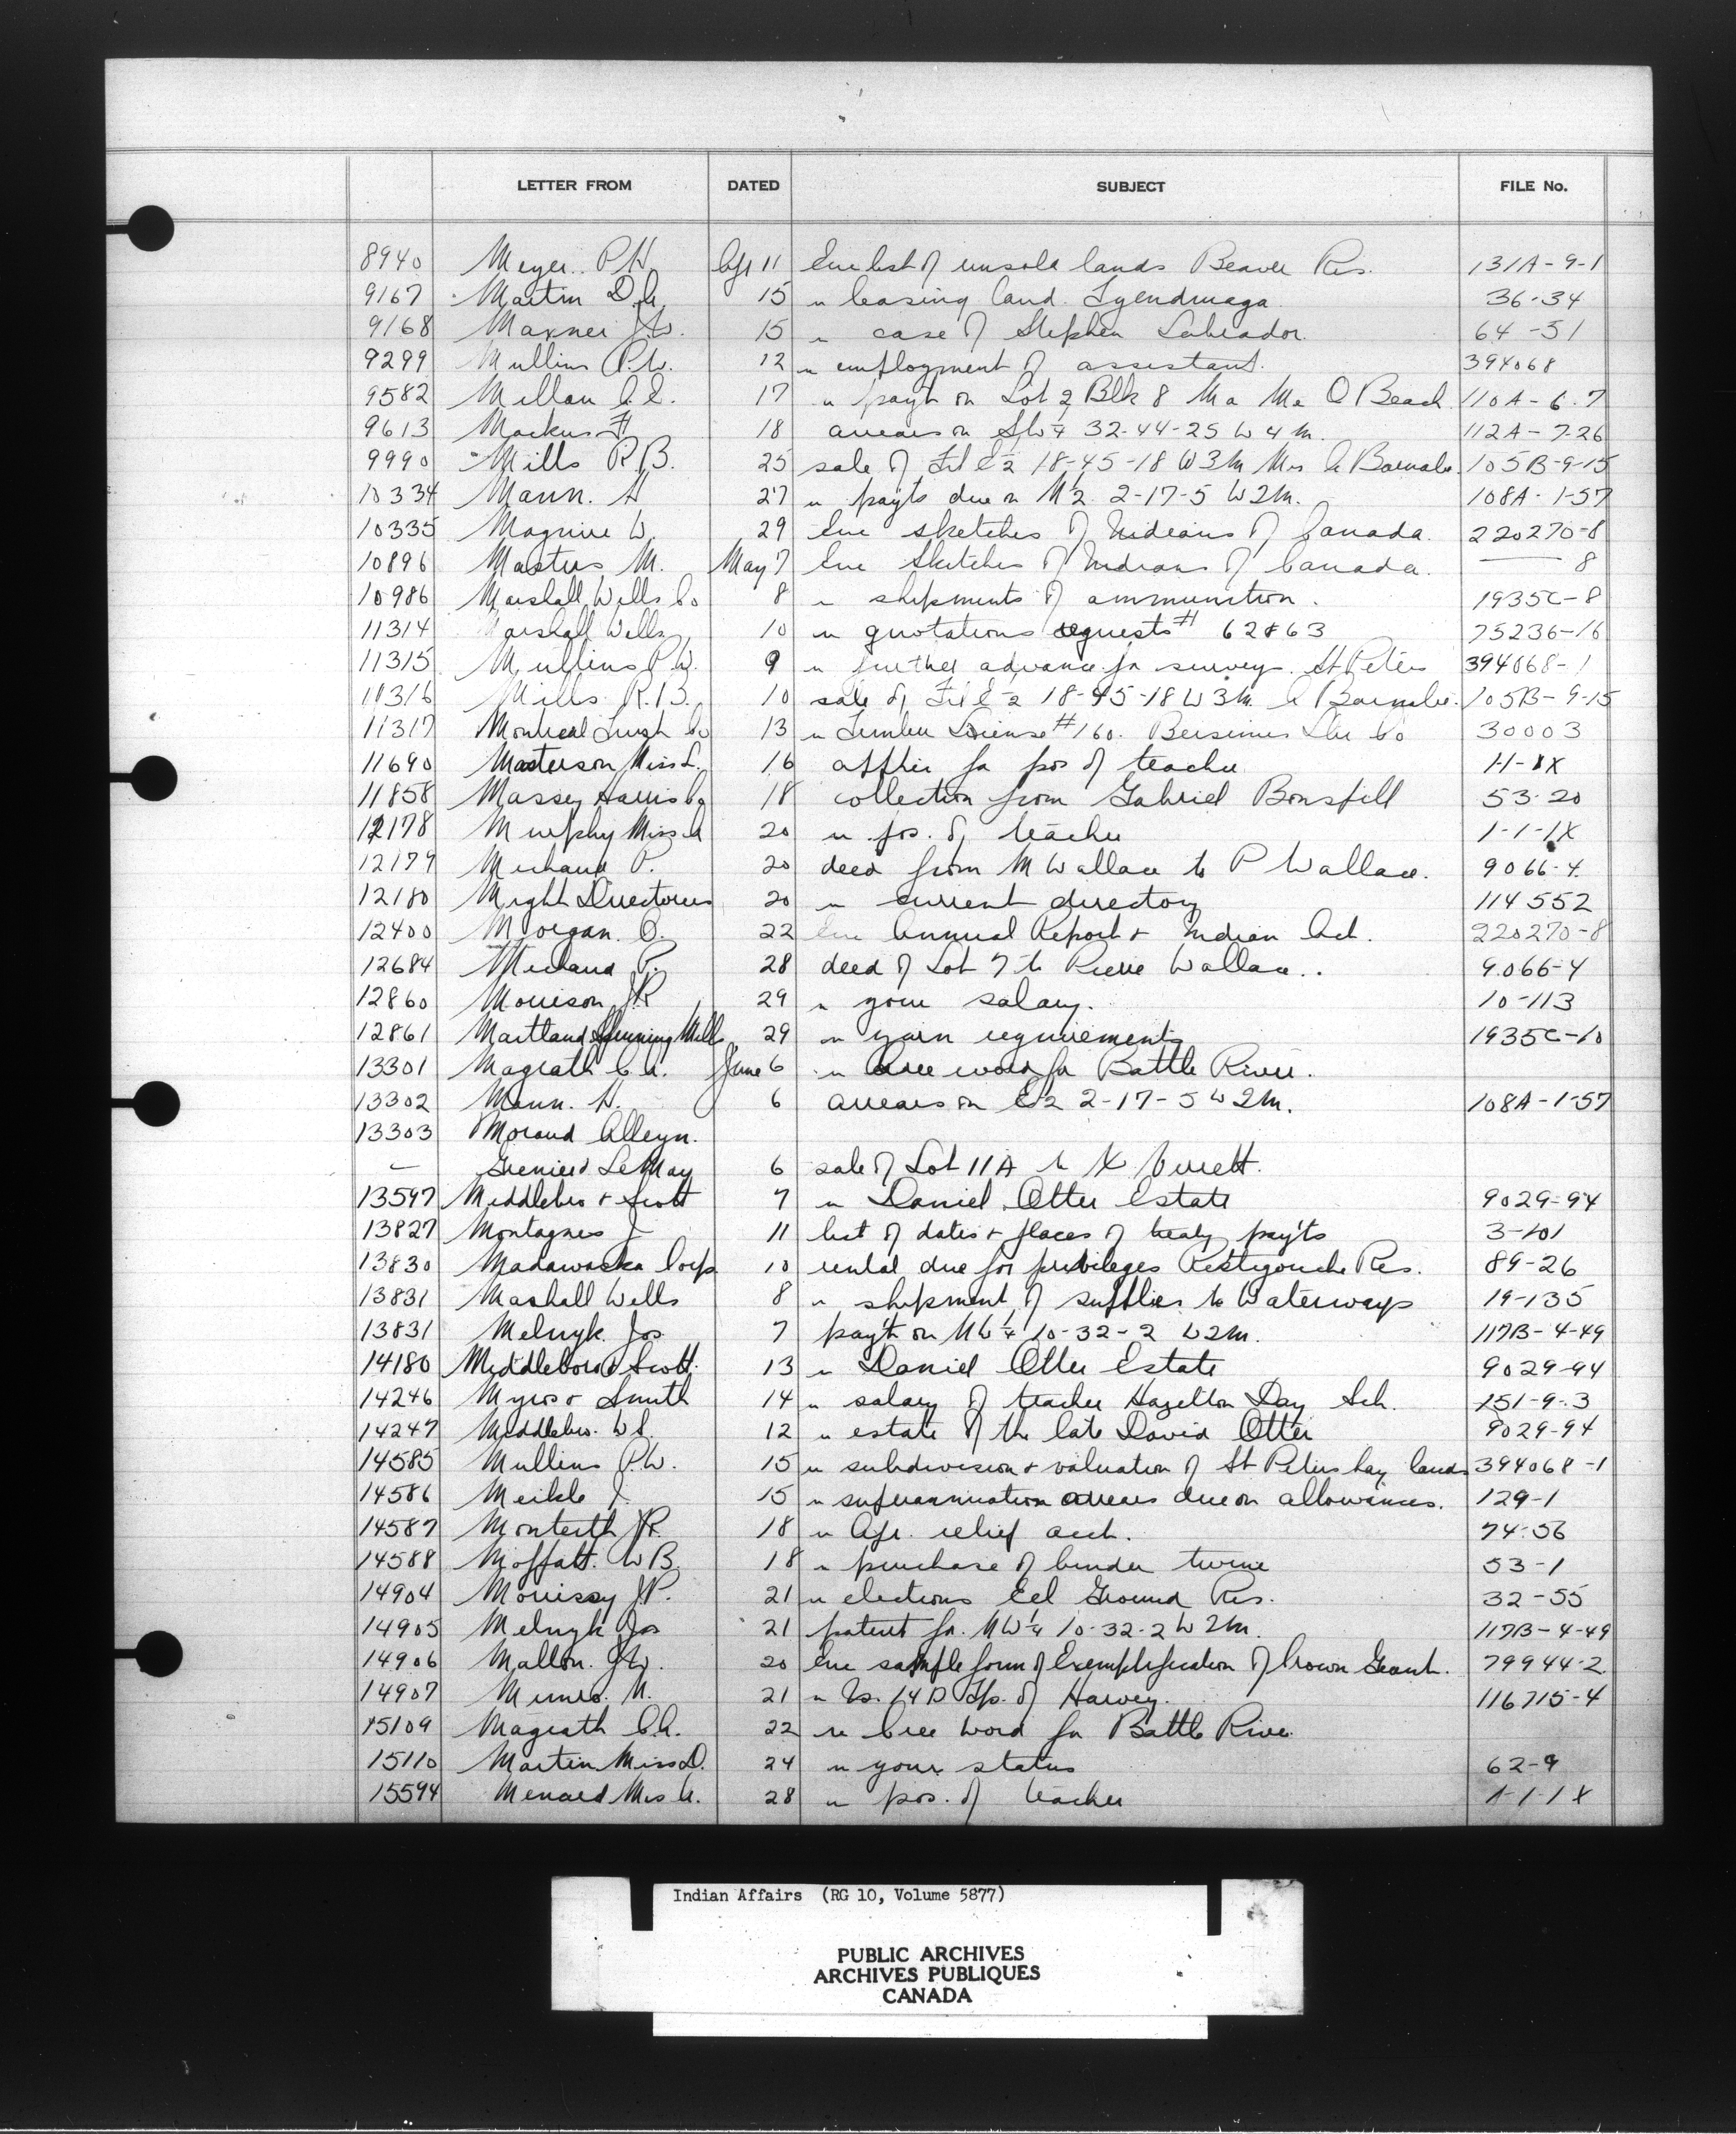 LETTER FROM DATED SUBJECT FILE No.
8940 Meyer. P.H. Apr 11 Enc list of unsold lands Beaver Res. 131A-9-1
9167 Martin D.A. 15 " leasing land. Tyendinaga 36-34
9168 Maxner J.W. 15 " case of Stephen Labrador. 64-51
9299 Mullins P.W. 12 " employment of assistant. 394068
9582 Millau A.E. 17 " payt on Lot 2 Blk 8 Ma Me O Beach 110A-6-7
9613 Mackus F 18 arrears on SW¼ 32-44-25 W 4 M. 112A-7-26
9990 Mills R.B. 25 sale of Frl E½ 18-45-18 W3M Mrs A Barnabe 105B-9-15
10334 Mann. H 27 " payts due on N½ 2-17-5 W2M. 108A-1-57
10335 Maguire W 29 Enc sketches of Indians of Canada. 220270-8
10896 Masters M. May 7 Enc Sketches of Indians of Canada. — 8
10986 Marshall Wells Co 8 " shipments of ammunition. 1935C-8
11314 Marshall Wells 10 " quotations requests # 62 & 63 75236-16
11315 Mullins P.W. 9 " further advance for survey St Peters 394068-1
11316 Mills R.B. 10 sale of Frl E½ 18-45-18 W3M A Barnabe. 105B-9-15
11317 Montreal Trust Co 13 " Timber License # 160. Bersimis Lbr Co 30003
11690 Masterson Miss L. 16 applic for pos of teacher H-1X
11858 Massey Harris Co 18 collection from Gabriel Bonspill 53-20
12178 Murphy Miss A 20 " pos. of teacher 1-1-1X
12179 Michaud P. 20 deed from M Wallace to P Wallace. 9066-4
12180 Might Directories 20 " current directory 114552
12400 Morgan. O. 22 Enc Annual Report & Indian Act. 220270-8
12684 Michaud P. 28 deed of Lot 7 to Pierre Wallace.. 9066-4
12860 Morrison J.R 29 " your salary. 10-113
12861 Maitland Spinning Mills 29 " yarn requirements 1935C-10
13301 Magrath C.A. June 6 " Cree word for Battle River.
13302 Mann. H. 6 arrears on E½ 2-17-5 W2M. 108A-1-57
13303 Moraud Alleyn.
— Grenier & LeMay 6 sale of Lot 11A to X Verrett.
13597 Middlebro & Scott 7 " Daniel Otter Estate 9029-94
13827 Montagnes J 11 list of dates & places of treaty payts 3-101
13830 Madawaska Corp 10 rental due for privileges Restigouche Res. 89-26
13831 Mashall Wells 8 " shipment of supplies to Waterways 19-135
13831 Melnyk Jos 7 payt on NW¼ 10-32-2 W2M. 117B-4-49
14180 Middlebro & Scott. 13 " Daniel Otter Estate 9029-94
14246 Myros & Smith 14 " salary of teacher Hazelton Day Sch. 151-9-3
14247 Middlebro. W.S. 12 " estate of the late David Otter 9029-94
14585 Mullins P.W. 15 " subdivision & valuation of St Peters hay lands 394068-1
14586 Meikle J. 15 " superannuation arrears due on allowances. 129-1
14587 Monteith J.R. 18 " Apr. relief acct. 74-56
14588 Moffatt. W B. 18 " purchase of binder twine 53-1
14904 Morrissy J.P. 21 " elections Eel Ground Res. 32-55
14905 Melnyk Jos 21 patent for NW¼ 10-32-2 W 2M. 117B-4-49
14906 Mallon. J.W. 20 Enc sample form of Exemplification of Crown Grant. 79944-2
14907 Munro. N. 21 " Is. 14D Tp. of Harvey. 116715-4
15109 Magrath C.A. 22 re Cree word for Battle River
15110 Martin Miss D. 24 " your status 62-9
15594 Menard Mrs A. 28 " pos. of teacher 1-1-1X
Indian Affairs (RG 10, Volume 5877)
PUBLIC ARCHIVES
ARCHIVES PUBLIQUES
CANADA